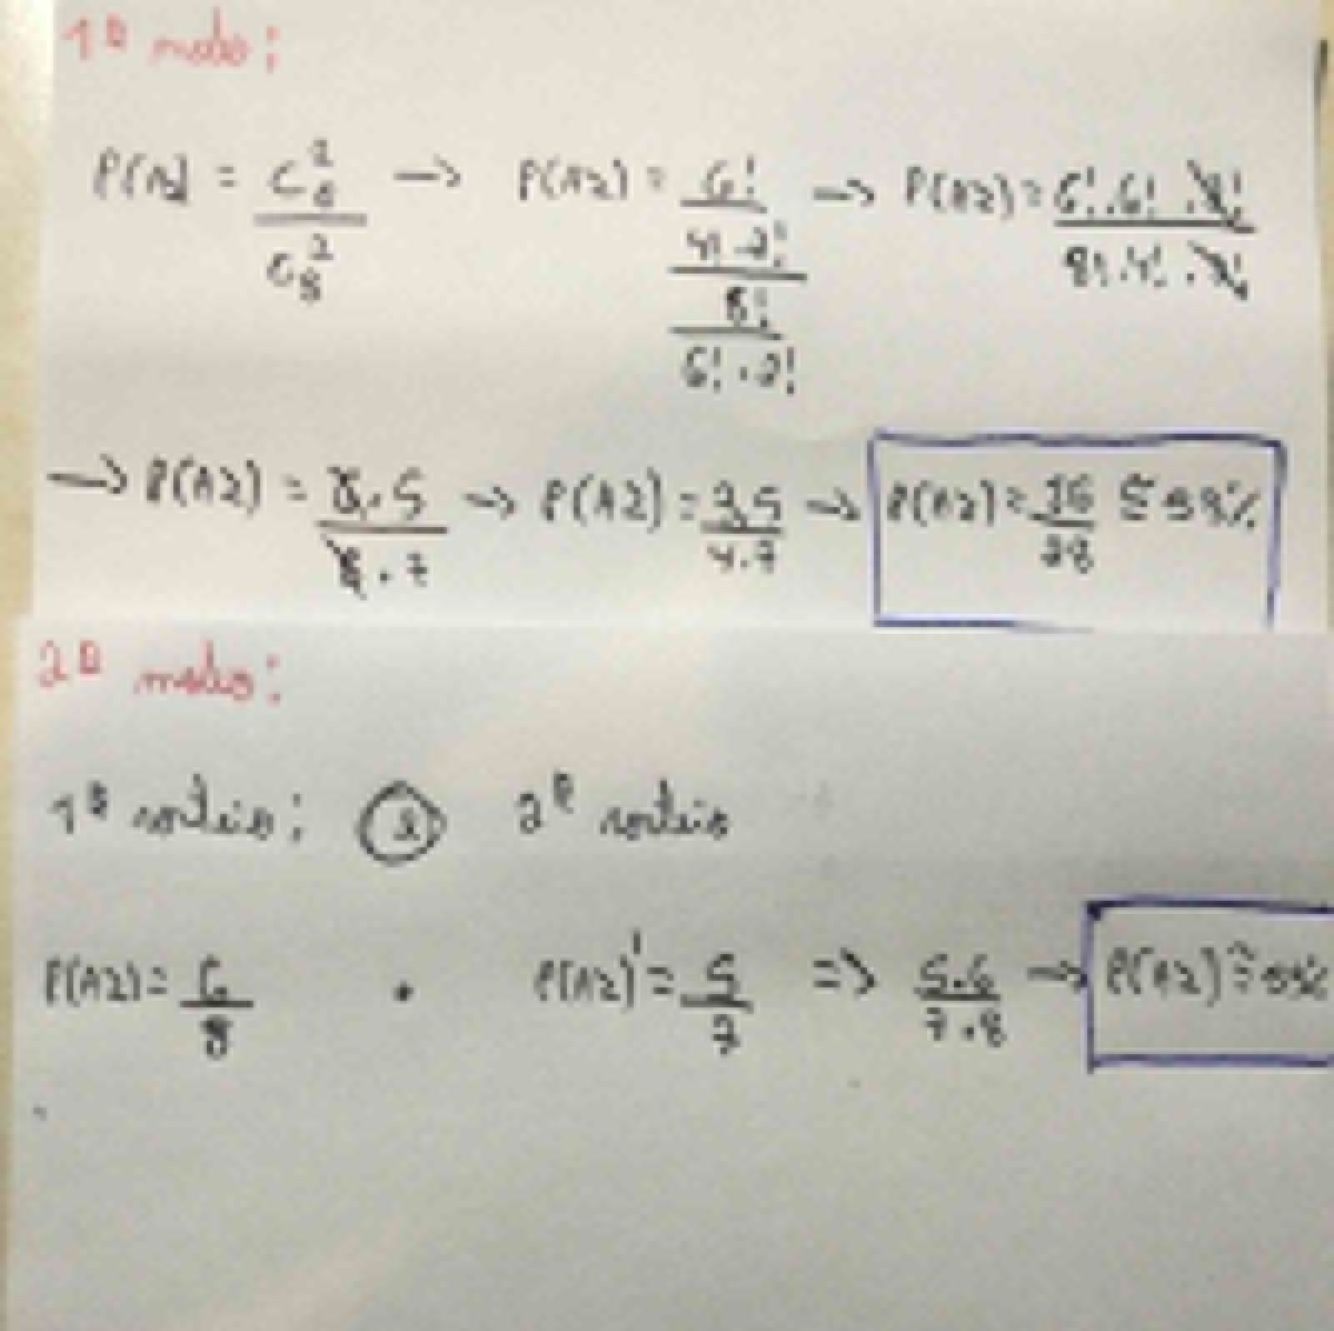 1º modo:
P(A2) = C₆² / C₈² → P(A2) = (6! / 4!.2!) / (8! / 6!.2!) → P(A2) = 6!.6!.2! / 8!.4!.2!
→ P(A2) = 6.5 / 8.7 → P(A2) = 3.5 / 4.7 → P(A2) = 15 / 28 ≅
2º modo:
1º sorteio: 2º sorteio
P(A2) = 6/8 . P(A2)' = 5/7 ⇒ 5.6 / 7.8 → P(A2) ≅